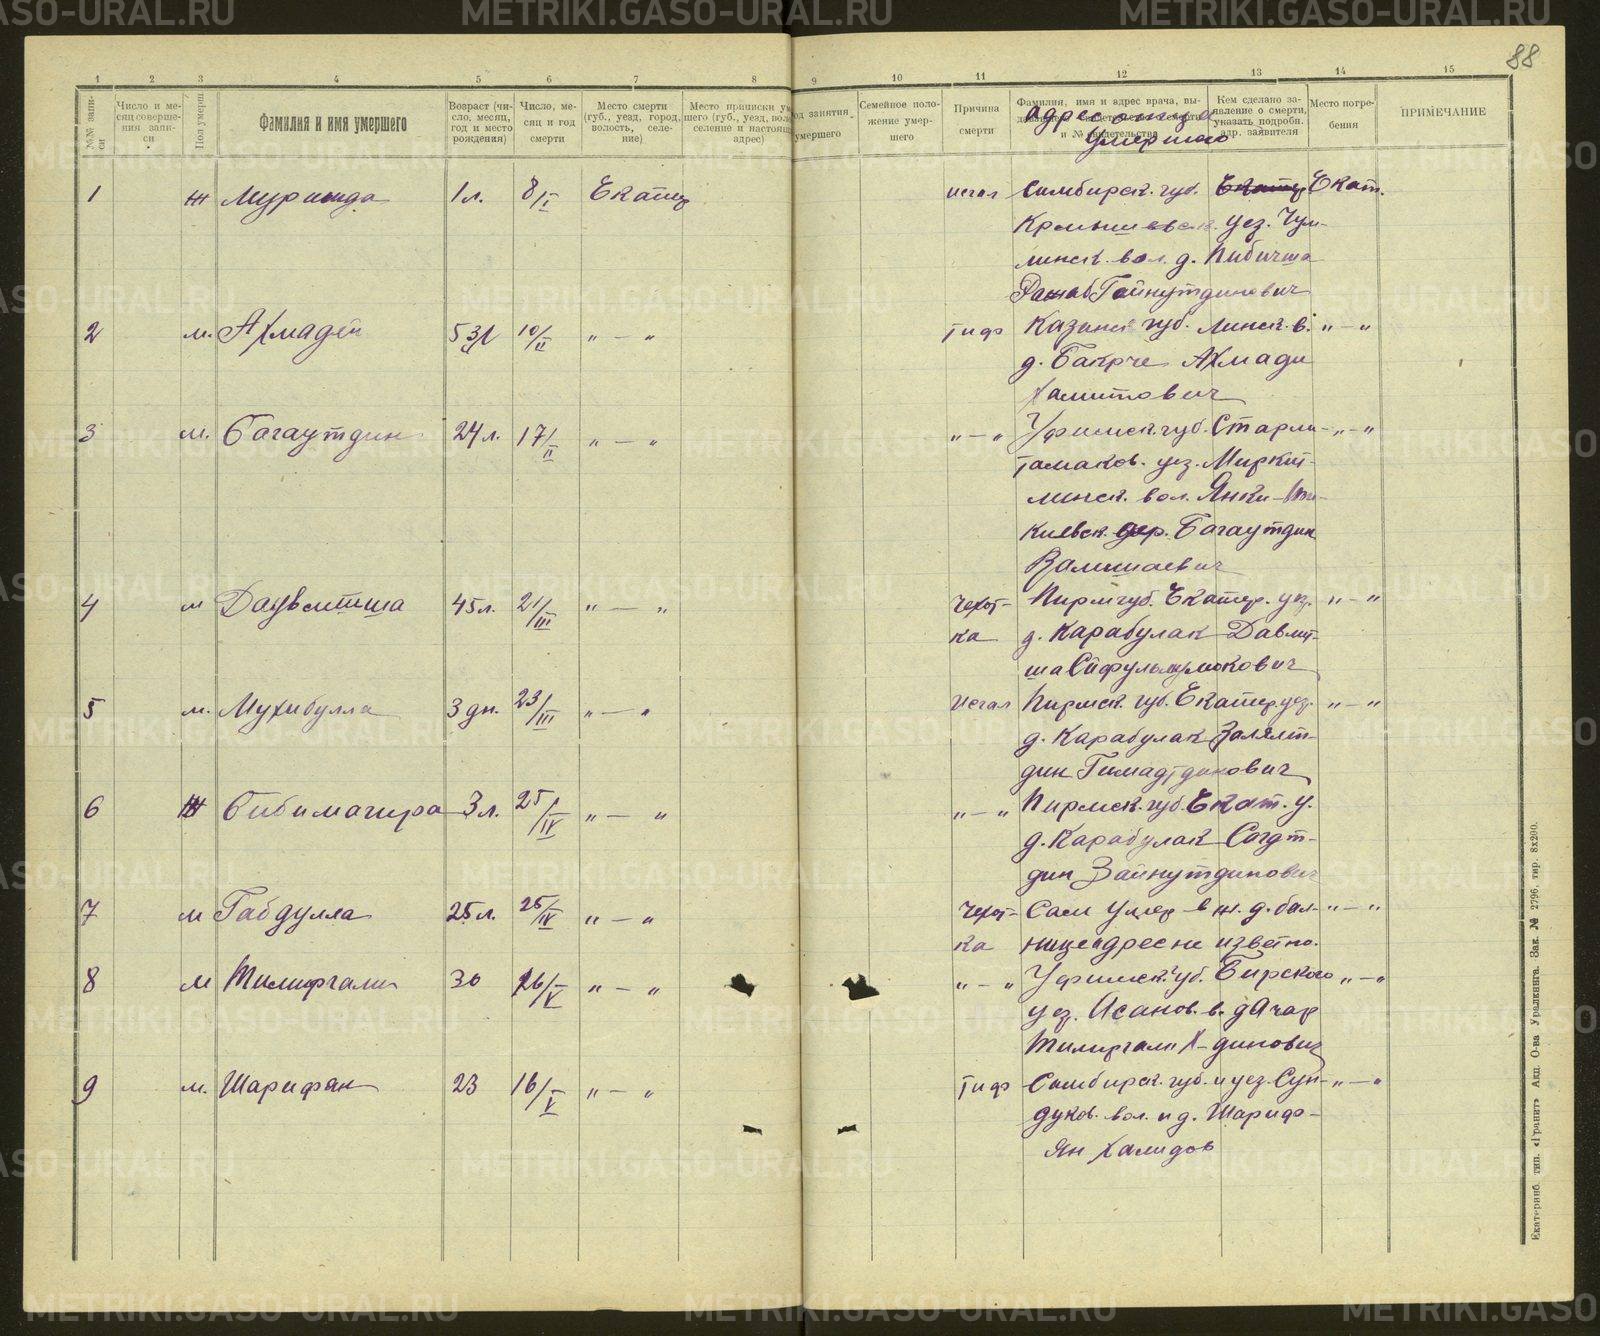 88
1 2 3 4 5 6 7 8 9 10 11 12 13 14 15
№№ записи
Число и месяц совершения записи
Пол умерш
Фамилия и имя умершего
Возраст (число, месяц, год и место рождения)
Число, месяц и год смерти
Место смерти (губ., уезд, город, волость, селение)
Место приписки ум шего (губ., уезд, вол селение и настоящ адрес)
од занятия умершего
Семейное положение умершего
Причина смерти
Фамилия, имя и адрес врача, вы-
и № свидетельства
адрес отца
умершаго
Кем сделано заявление о смерти, указать подробн. адр. заявителя
Место погребения
ПРИМЕЧАНИЕ
1 ж 1 л. 8/I Екатер Симбирск. губ. Екатер Екат.
уез. Чум-
линск. вол. д.
Гайнутдинович
2 м. Ахмади 53 л 10/II „ — „ тиф Казанс губ. в. „ — „
д. Ахмади
Хамитович
3 м. Багаутдин 24 л. 17/II „ — „ „ — „ Уфимск. губ. Старли- „ — „
тамаков. уез. Миркит-
линск. вол. Янки-
киевск. дер. Багаутдин
4 м 45 л. 21/III „ — „ чехот- Пирм губ. Екатер. у „ — „
ка д. Карабулак Давлит-
ша
5 м. Мухибулла 3 дн. 23/III „ — „ Пирмск. губ. Екатер уез. „ — „
д. Карабулак Залялт-
дин Гимадтдинович
6 ж Бибимагира 3 л. 25/IV „ — „ „ — „ Пирмск. губ. Екат. у.
д. Карабулак Сагдт-
дин Зайнутдинович
7 м Габдулла 25 л. 26/IV „ — „ чехот- Сам умер в ж. д. бол- „ — „
ка нице адрес не
8 м 30 26/V „ — „ „ — „ Уфимск. губ. Бирского „ — „
уез. Асанов. в. д Ачар
динович
9 м. Шарифян 23 16/V „ — „ тиф Симбирск. губ. и уез. Сун- „ — „
дуков. вол. и д. Шариф-
ян Халидов
Екатеринб. тип. «Гранит» Акц. О-ва Уралкнига. Зак. № 2796. тир. 8х200.
METRIKI.GASO-URAL.RU